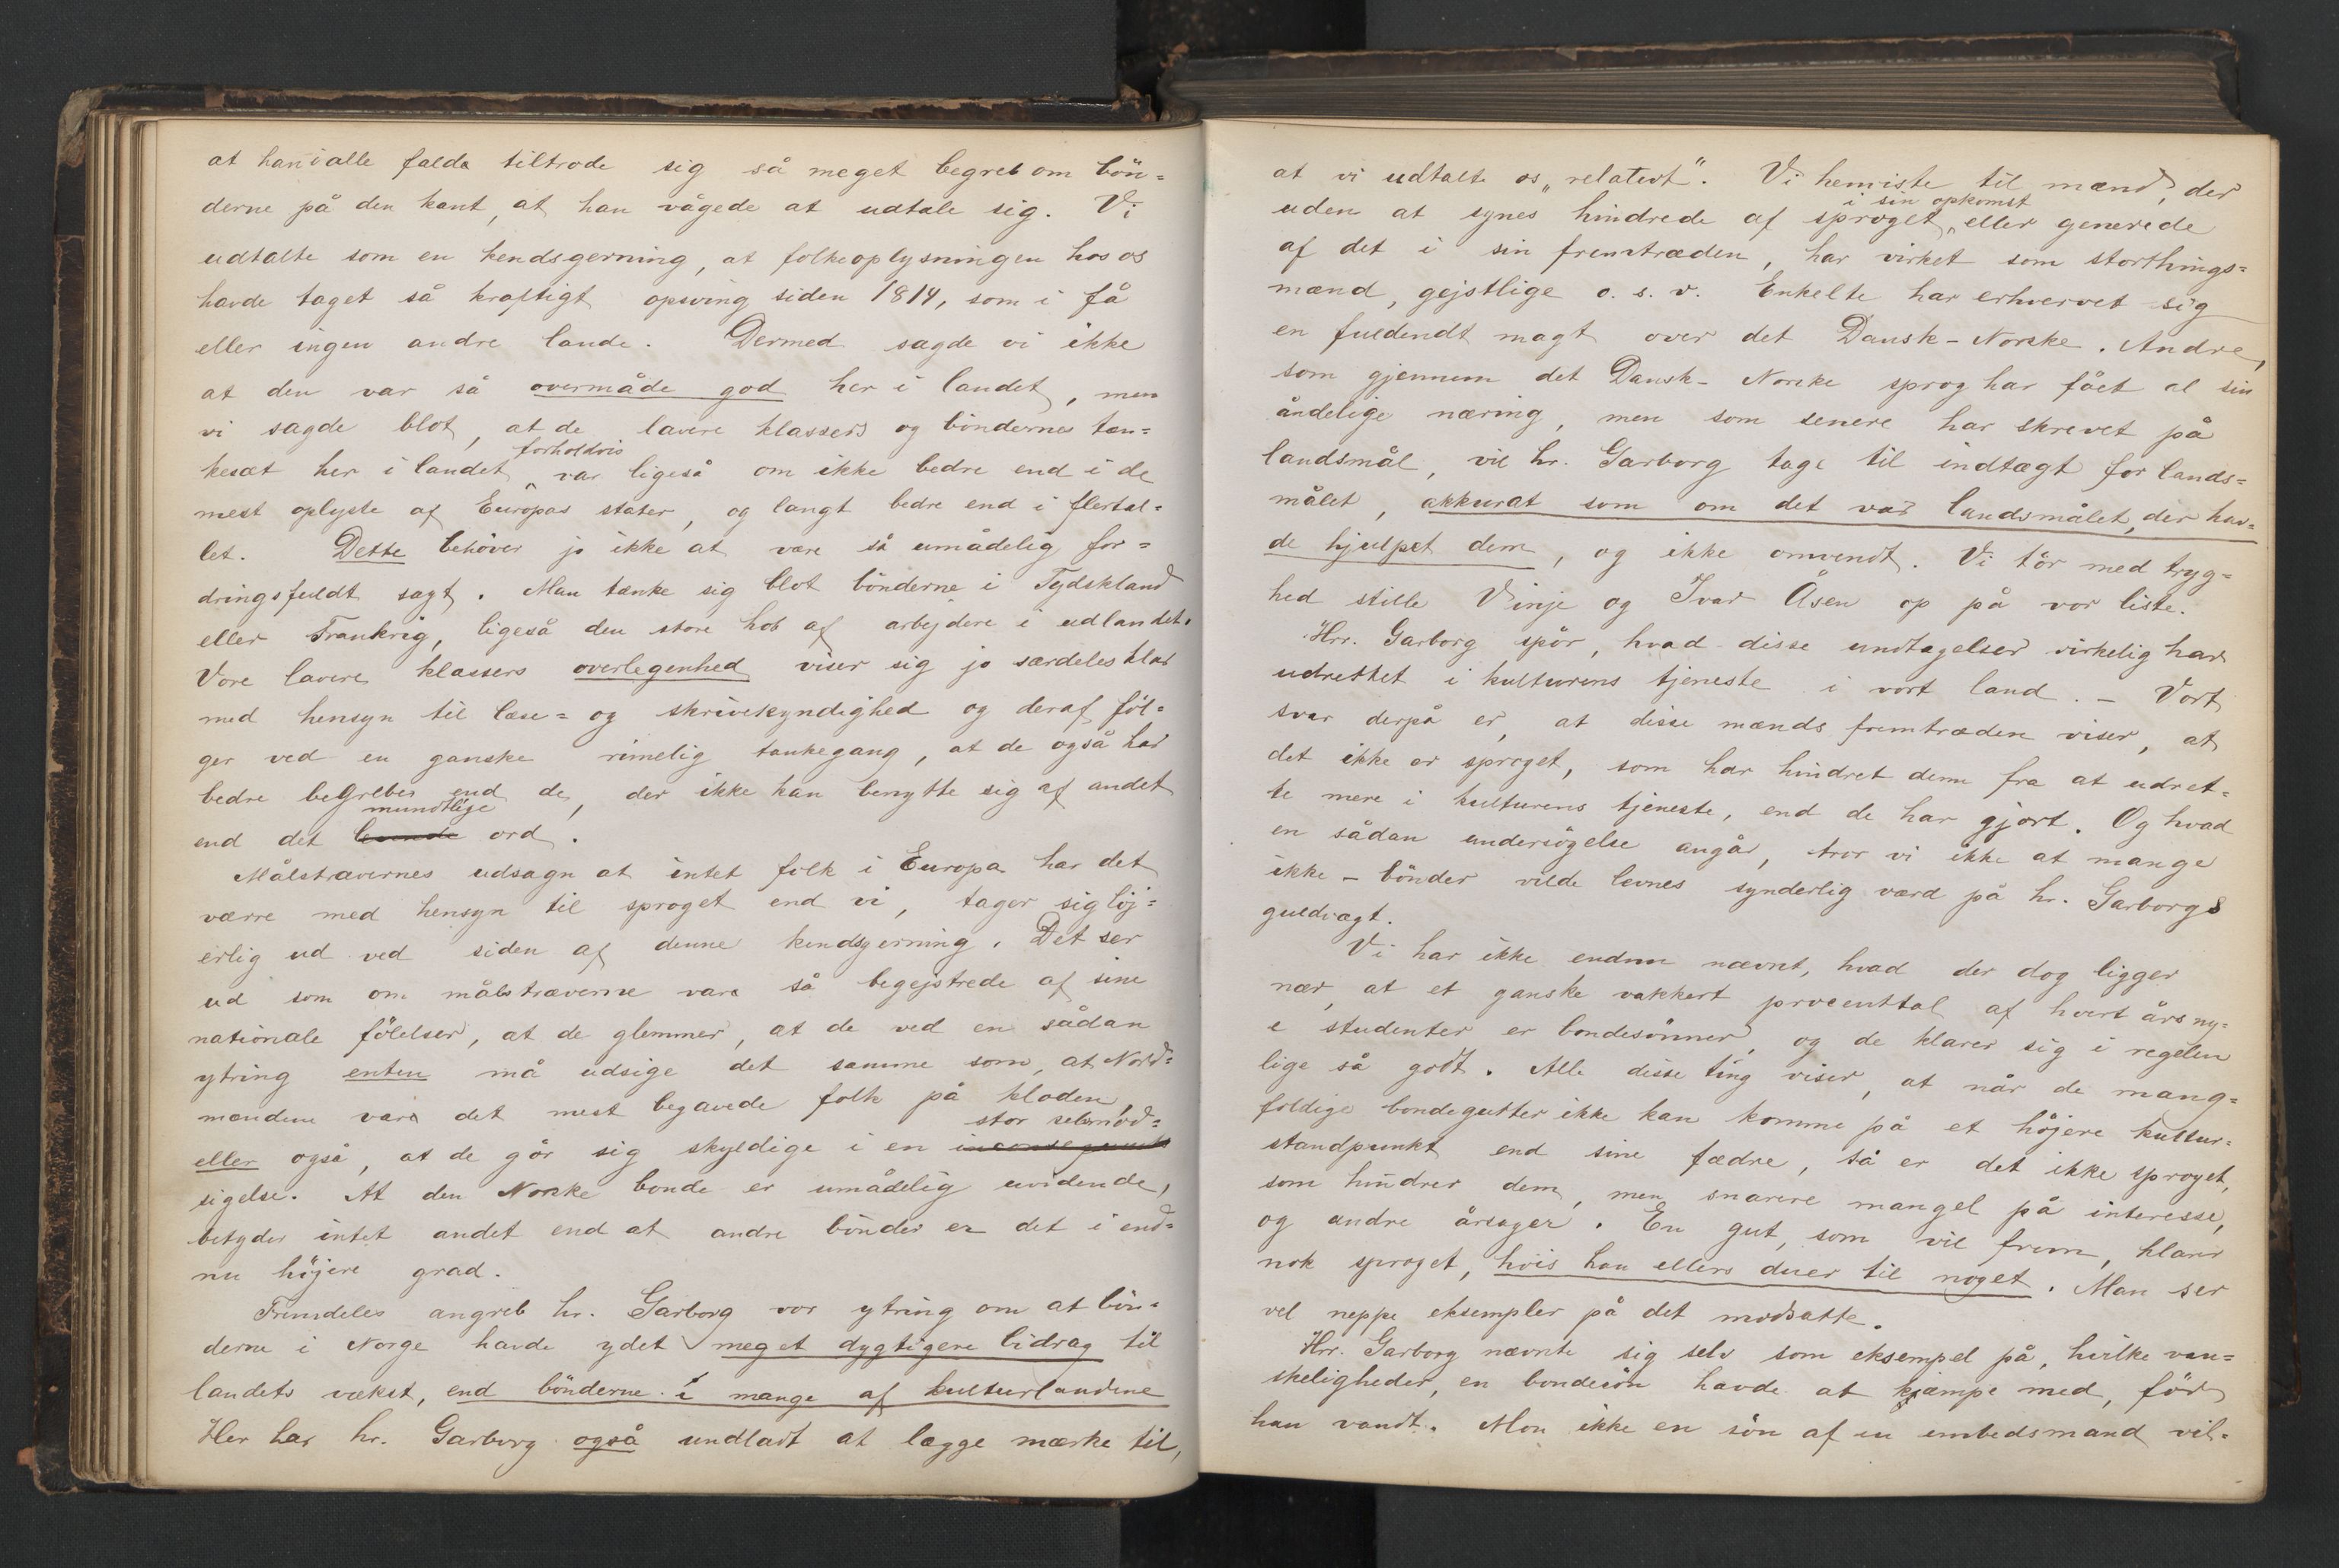 at han i alle falde tiltrode sig så meget begreb om bön=
derne på den kant, at han vågede at udtale sig. Vi
udtalte som en kendsgerning, at folkeoplysningen hos os
havde taget så kraftigt opsving siden 1814, som i få
eller ingen andre lande. Dermed sagde vi ikke
at den var så overmåde god her i landet, men
vi sagde blot, at de lavere klassers og böndernes tæn=
forholdvis
kesæt her i landet var ligeså om ikke bedre end i de
mest oplyste af Europas stater, og langt bedre end i flertal=
let. Dette behöver jo ikke at være så umådelig for=
dringsfuldt sagt. Man tænke sig blot bönderne i Tydskland
eller Frankrig, ligeså den store hob af arbejdere i udlandet.
Vore lavere klassers overlegenhed viser sig jo særdeles klar
med hensyn til læse= og skrivekyndighed og deraf föl=
ger ved en ganske rimelig tankegang, at de også har
bedre begreber end de, der ikke kan benytte sig af andet
mundtlige
end det levende ord.
Målstrævernes udsagn at intet folk i Europa har det
værre med hensyn til sproget end vi, tager sig löj=
erlig ud ved siden af denne kendsgerning. Det ser
ud som om målstræverne vare så begejstrede af sine
nationale fölelser, at de glemmer, at de ved en sådan
ytring enten må udsige det samme som, at Nord=
mændene vare det mest begavede folk på kloden,
stor selvmod=
eller også, at de gör sig skyldige i en inconsequents
sigelse. At den Norske bonde er umådelig uvidende,
betyder intet andet end at andre bönder er det i end=
nu höjere grad.
Fremdeles angreb hr. Garborg vor ytring om at bön=
derne i Norge havde ydet meget dygtigere bidrag til
landets vækst, end bönderne i mange af kulturlandene
Her har hr. Garborg også undladt at lægge mærke til,
at vi udtalte os „relativt". Vi henviste til mænd, der
i sin opkomst
uden at synes hindrede af sproget, eller generede
af det i sin fremtræden, har virket som storthings=
mænd, gejstlige o. s. v. Enkelte har erhvervet sig
en fuldendt magt over det Dansk-Norske. Andre,
som gjennem det Dansk-Norske sprog har fået al sin
åndelige næring, men som senere har skrevet på
landsmål, vil hr. Garborg tage til indtægt for lands=
målet, akkurat som om det var landsmålet, der hav=
de hjulpet dem, og ikke omvendt. Vi tör med tryg=
hed stille Vinje og Ivar Åsen op på vor liste.
Hrr. Garborg spör, hvad disse undtagelser virkelig har
udrettet i kulturens tjeneste i vort land. – Vort
svar derpå er, at disse mænds fremtræden viser, at
det ikke er sproget, som har hindret dem fra at udret=
te mere i kulturens tjeneste, end de har gjort. Og hvad
en sådan undersögelse angår, tror vi ikke at mange
ikke-bönder vilde levnes synderlig værd på hr. Garborgs
guldvægt.
Vi har ikke endnu nævnt, hvad der dog ligger
nær, at et ganske vakkert procenttal af hvert års ny=
e studenter er bondesönner, og de klarer sig i regelen
lige så godt. Alle disse ting viser, at når de mang=
foldige bondegutter ikke kan komme på et höjere kultur=
standpunkt end sine fædre, så er det ikke sproget,
som hindrer dem, men snarere mangel på interesse,
og andre årsager. En gut, som vil frem, klarer
nok sproget, hvis han ellers duer til noget. Man ser
vel neppe eksempler på det modsatte.
Hrr. Garborg nævnte sig selv som eksempel på, hvilke van=
skeligheder, en bondesön havde at kjæmpe med, för
han vandt. Mon ikke en sön af en embedsmand vil=